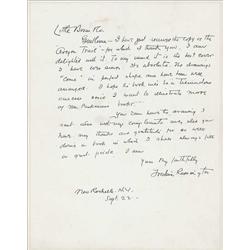 Little Brown & Co.
Gentlemen - I have just received the copy of the
Oregon Trail - for which I thank you. I am
delighted with it. To my mind it is the best cover
I have ever seen. It's absolute. The drawings
"Come" in perfect shape and have been well
arranged. I hope the book will be a tremendous
success since I want to illustrate more
of Mr. Parkman's books.
You can have the drawing I
sent also with my compliments and also you
have my thanks and gratitude for so well
done a book in which I shall always feel
a just pride. I am
Yours faithfully
Frederic Remington
New Rochelle. N.Y.
Sept. 22 -